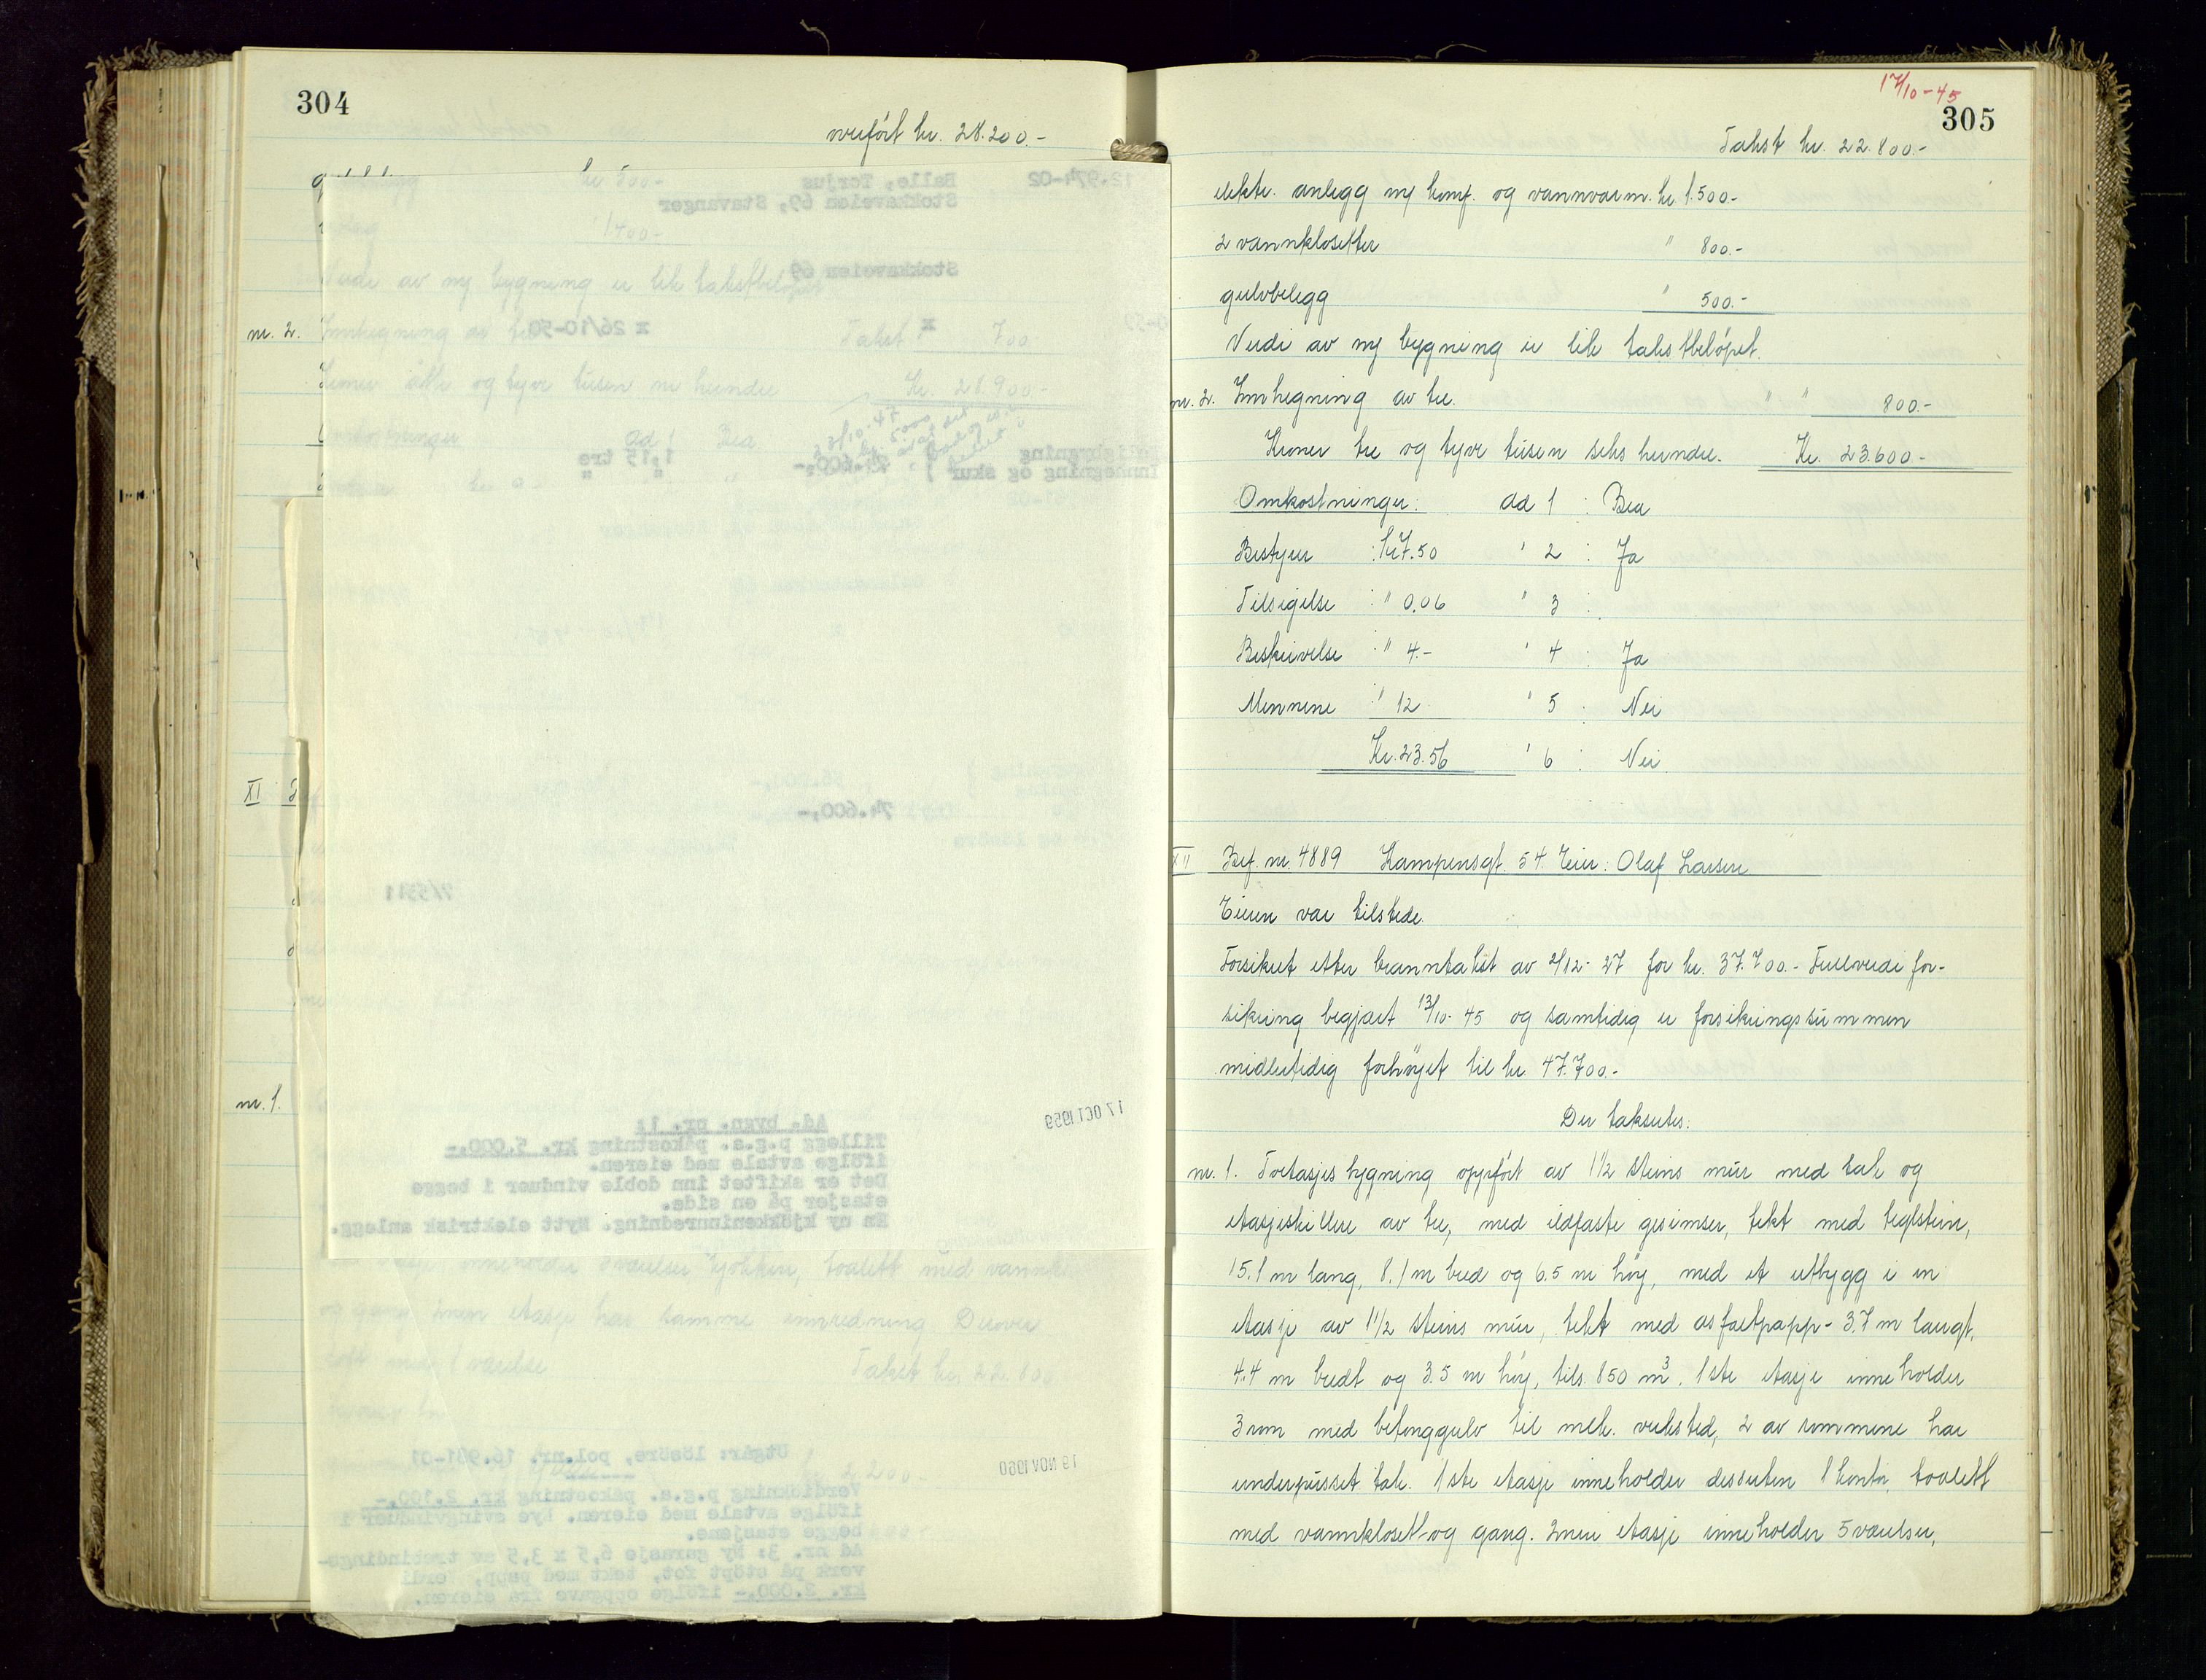 304
overført kr. 28.200.-
nr. 2. Innhegning av tre Takst " 700
Kroner åtte og tyve tusen ni hundre Kr. 28.900.-
ad 1 Bra
XI
nr. 1.
inneholder værelser kjøkken, toalett med vannkl
og gang 2nen etasje har samme innredning Derover
loft med 1 værelse Takst kr. 22.800
Balle, Torjus
Stokkaveien 69, Stavanger
Stokkaveien 69
x 26/10-50
Innhegning og skur
74.600,-
17 OCT 1959
Ad. bygn. nr. 1:
Tillegg p.g.a. påkostning kr. 5.000,-
ifölge avtale med eieren.
Det er skiftet inn doble vinduer i begge
etasjer på en side.
En ny kjökkeninnredning. Nytt elektrisk anlegg.
19 NOV 1960
Utgår: lösöre, pol.nr. 16.981-01
Verdiökning p.g.a. påkostning kr. 2.100,-
ifölge avtale med eieren. Nye svingvinduer i
begge etasjene.
Ad nr. 3: Ny garasje 6,5 x 3,5 av trebindings-
verk på stöpt fot, tekt med papp, Verdi
kr. 3.000.- ifölge oppgave fra eieren.
17/10-45
305
Takst kr. 22.800.-
elektr. anlegg m/ komf. og vannvarm. kr 1.500.-
2 vannklosetter " 800.-
gulvbelegg " 500.-
Verdi av ny bygning er lik takstbeløpet.
nr. 2. Innhegning av tre. " " 800.-
Kroner tre og tyve tusen seks hundre. Kr. 23.600.-
Omkostninger: ad 1 : Bra
Bestyrer : kr 7.50 " 2 : Ja
Tilsigelse : " 0.06 " 3 :
Beskrivelse : " 4.- " 4 : Ja
Mennene : " 12 " 5 : Nei
Kr. 23.56 " 6 : Nei
XII Bef. nr. 4889 Kampensgt. 54. Eier: Olaf Larsen
Eieren var tilstede.
Forsikret etter branntakst av 2/12-27 for kr. 37.700.- Fullverdifor-
sikring begjært 13/10-45 og samtidig er forsikringssummen
midlertidig forhøyet til kr 47.700.-
Der takseres:
nr. 1. Toetasjes bygning oppført av 1 1/2 steins mur med tak og
etasjeskillere av tre, med ildfaste gesimser, tekt med teglstein,
15.1 m lang, 8.1 m bred og 6.5 m høy, med et utbygg i en
etasje av 1 1/2 steins mur, tekt med asfaltpapp- 3.7 m langt,
4.4 m bredt og 3.5 m høy, tils. 850 m³. 1ste etasje inneholder
3 rom med betonggulv til mek. verksted, 2 av rommene har
underpusset tak. 1ste etasje inneholder dessuten 1 kontor, toalett
med vannklosett og gang. 2nen etasje inneholder 5 værelser,